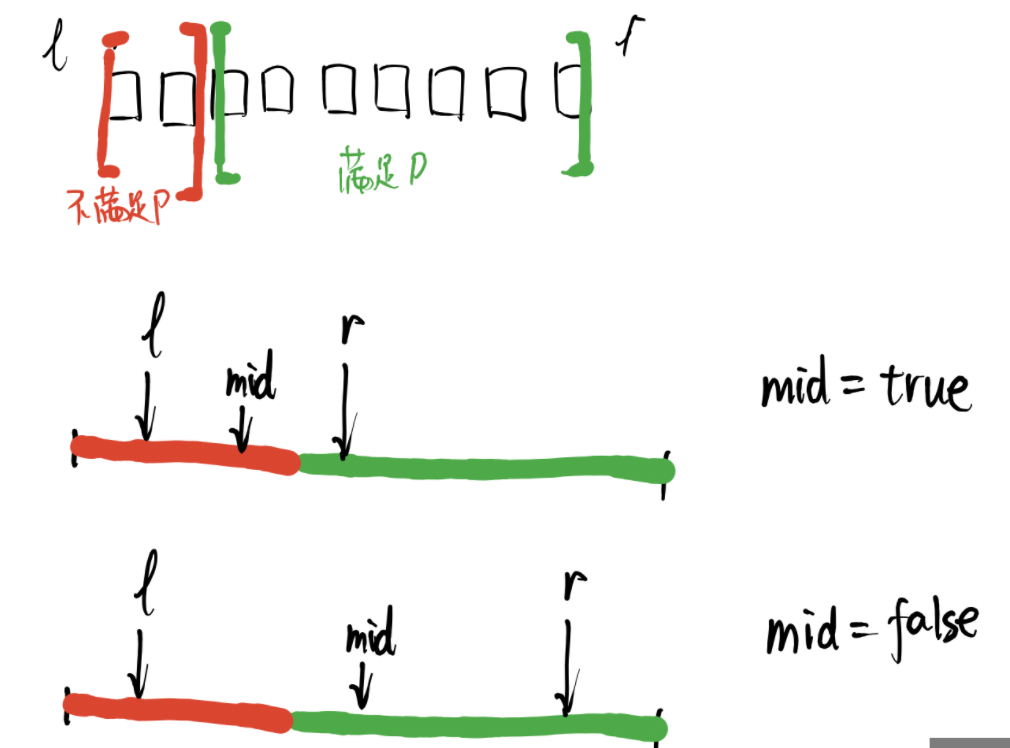 l r
满足P
不满足P
l r
mid
mid = true
l r
mid
mid = false